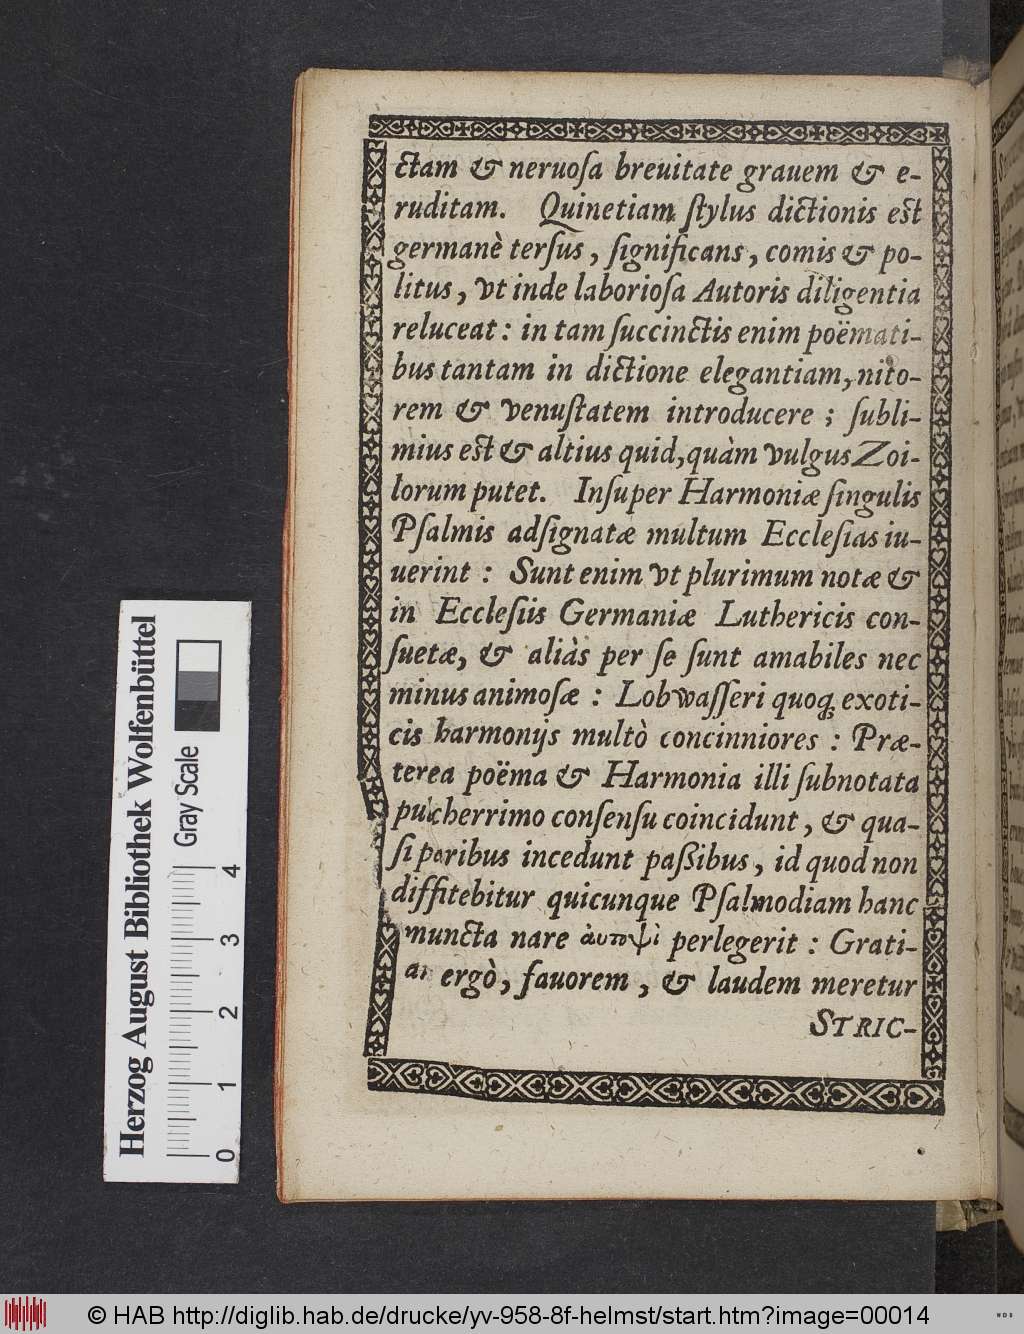 ctam & neruoſa breuitate grauem & e-
ruditam. Quinetiam ſtylus dictionis est
germanè terſus, ſignificans, comis & po-
litus, vt inde laborioſa Autoris diligentia
reluceat: in tam ſuccinctis enim poëmati-
bus tantam in dictione elegantiam, nito-
rem & venuſtatem introducere; ſubli-
mius est & altius quid, quàm vulgus Zoi-
lorum putet. Inſuper Harmoniæ ſingulis
Pſalmis adſignatæ multum Eccleſias iu-
uerint: Sunt enim vt plurimum notæ &
in Eccleſiis Germaniæ Luthericis con-
ſuetæ, & aliàs per ſe ſunt amabiles nec
minus animoſæ: Lobwaſſeri quoq; exoti-
cis harmonijs multò concinniores: Præ-
terea poëma & Harmonia illi ſubnotata
pulcherrimo conſenſu coincidunt, & qua-
ſi paribus incedunt paßibus, id quod non
diffitebitur quicunque Pſalmodiam hanc
muncta nare ἀυτοψὶ perlegerit: Grati-
ergò, fauorem, & laudem meretur
STRIC-
Herzog August Bibliothek Wolfenbüttel
Gray Scale
0 1 2 3 4
© HAB http://diglib.hab.de/drucke/yv-958-8f-helmst/start.htm?image=00014